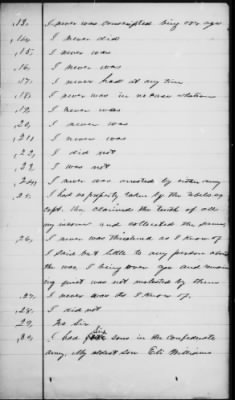 13. I never was conscripted being over age
14. I never did
15. I never was
16. I never was
17. I never had at any time
18. I never was in no case
19. I never was
20. I never was
21. I never was
22. I did not
23. I was not
24. I never was arrested by either army
25. I had no property taken by the rebels
except the claimed the tenth of all
my and collected the same
26. I never was threatened as I know of
I said but little to any person about
the war, I being over age and
quiet was not molested by them
27. I never was as I know of,
28. I did not
29. No Sir
30. I had six sons in the Confederate
army, My oldest son Eli Williams